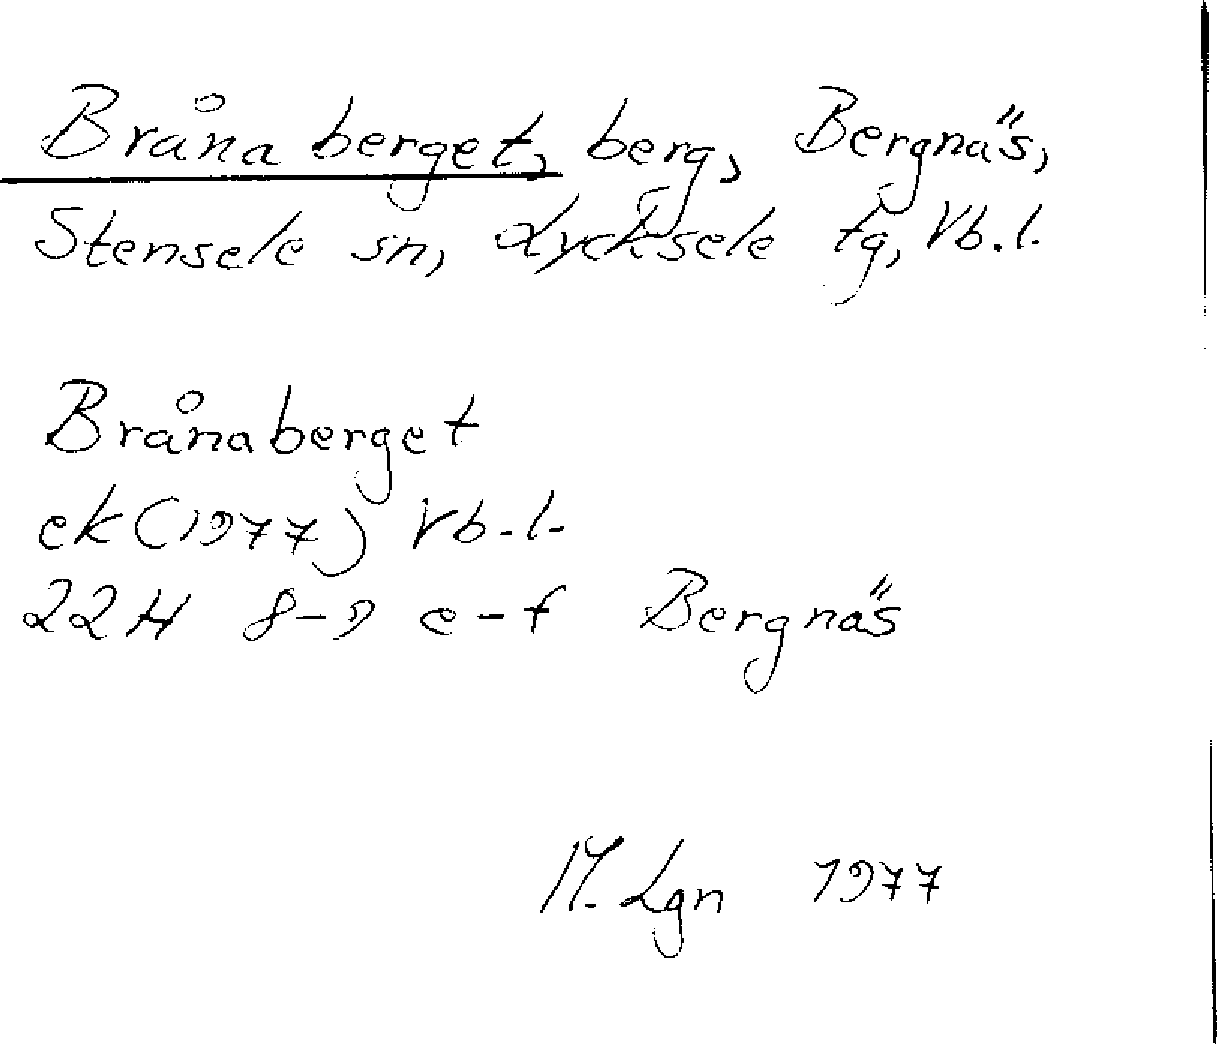 Brånaberget, berg, Bergnäs,
Stensele sn, Lycksele tg, Vb.l.
Brånaberget
ek (1977) Vb.l.
22H 8-9 e-f Bergnäs
M. Lgn 1977